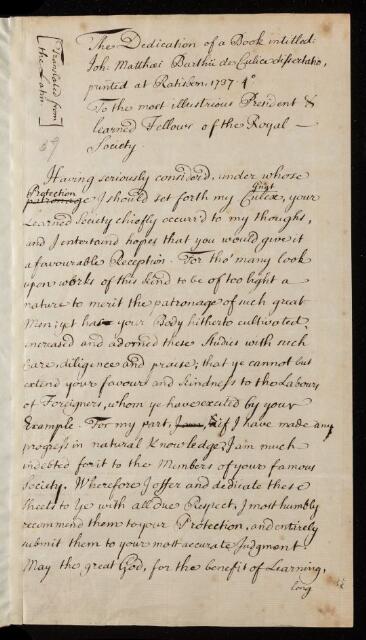 [Translated from
the Latin]
The Dedication of a Book intitled:
Joh: Matthæi Barthii de Culice dissertatio,
printed at Ratisbon, 1737. 4°
To the most illustrious President &
learned Fellows of the Royal
Society.
59
Having seriously consider'd, under whose
Protection
patronage I should set forth my Culex, your
Gnat
Learned Society chiefly occurr'd to my thought,
and I entertain'd hopes that you would give it
a favourable Reception. For tho' many look
upon works of this kind to be of too light a
nature to merit the patronage of such great
Men; yet has your Body hitherto cultivated,
increased and adorned these Studies with such
care, diligence and praise, that ye cannot but
extend your favours and kindness to the Labours
of Foreigners, whom ye have excited by your
Example. For my part, if I have made any
progress in natural Knowledge, I am much
indebted for it to the Members of your famous
Society. Wherefore I offer and dedicate these
sheets to Ye with all due Respect, I most humbly
recommend them to your Protection, and entirely
submit them to your most accurate Judgment
May the great God, for the benefit of Learning,
long